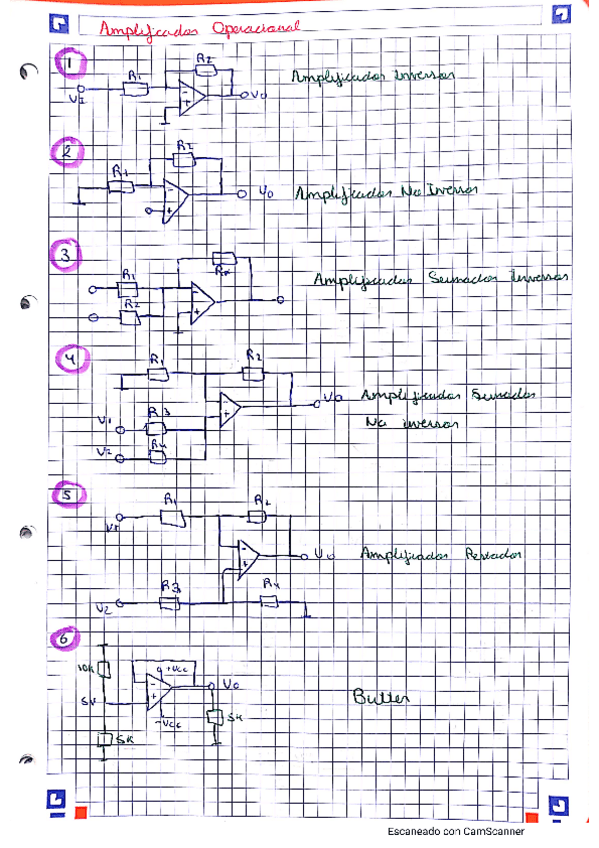 Amplificador Operacional
1
R1
R2
Vi
Vo
Amplificador Inversor
2
R2
R1
Vo
Amplificador No Inversor
3
R1
R2
Amplificador Sumador Inversor
4
R1
R2
Vo
Amplificador Sumador
No inversor
V1
R3
V2
R4
5
R1
R2
V1
Vo
Amplificador Restador
R3
R4
V2
6
10K
+Vcc
Vo
5V
-Vcc
5K
5K
Buffer
Escaneado con CamScanner